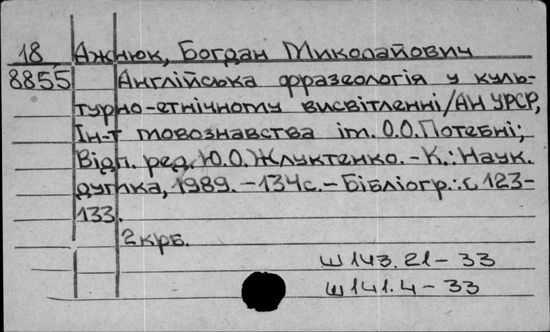 18 Ажнюк, Богдан Миколайович
8855 Англійська фразеологія у куль-
турно-етнічному висвітленні/АН УРСР,
Ін-т мовознавства ім. О.О.Потебні;
Відп. ред. Ю.О.Жлуктенко. - К.: Наук.
думка, 1989. - 134с. - Бібліогр.: с 123-
133.
2крб.
Ш143.21-33
Ш141.4-33